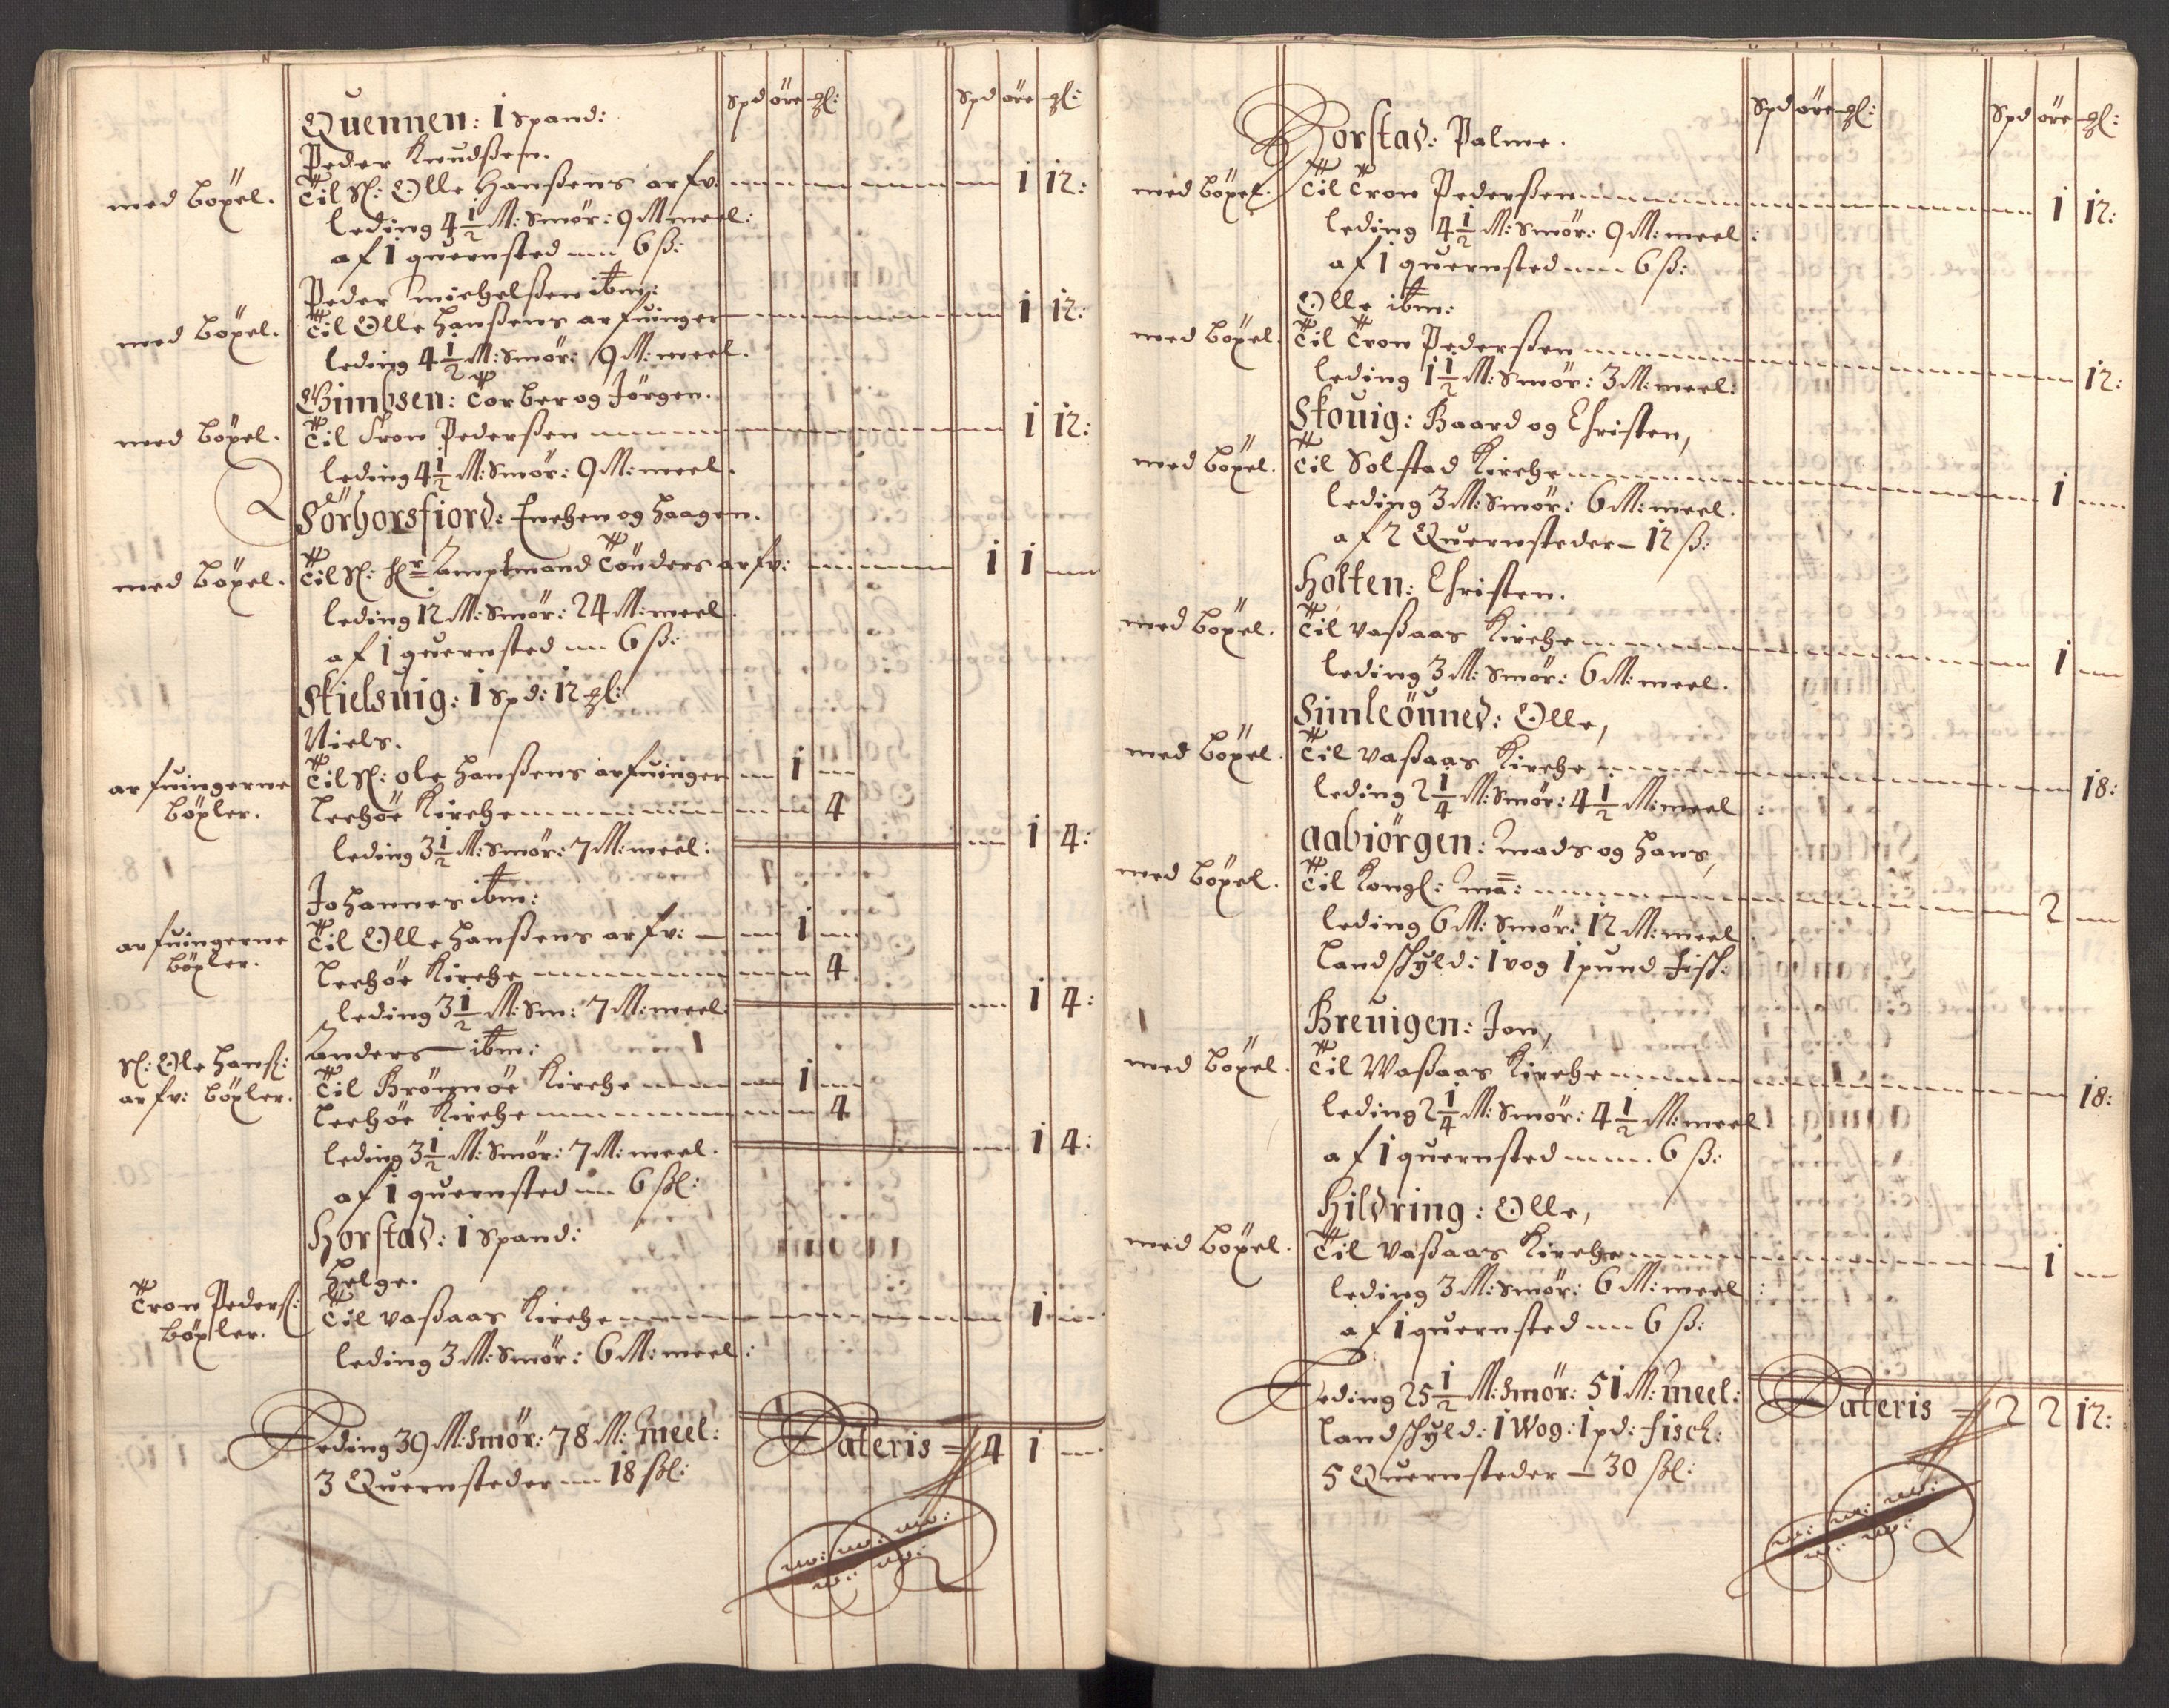 Spd öre gl: Spd öre gl:
Quennen: 1 Spand:
Peder Knudßen.
med böxel. Til Sl: Olle Hanßens arfv: 1 12:
leding 4 1/2 M: Smör: 9 M meel:
af 1 quernsted 6 ß:
Peder Michelßen ibm:
med böxel. Til Olle Hanßens arfuinger 1 12:
leding 4 1/2 M: Smör: 9 M: meel.
Gimbsen: Torber og Jörgen.
med böxel. Til Tron Pederßen 1 12:
leding 4 1/2 M: Smör: 9 M: meel.
Sörhorsfiord: Enchen og Haagen.
med böxel. Til Sl: Hr Amptmand Tönders arfv: 1 1
leding 12 M: Smör: 24 M: meel.
af 1 quernsted 6 ß:
Skielsuig: 1 Spd: 12 gl:
Niels.
arfuingerne Til Sl: Ole Hanßens arfuinger 1
böxler. Leehöe Kirche 4
leding 3 1/2 M: Smör: 7 M: meel: 1 4:
Johannes ibm:
arfuingerne Til Olle Hanßens arfv: 1
böxler. Leehöe Kirche 4
leding 3 1/2 M: Sm: 7 M: meel. 1 4:
Anders ibm:
Sl: Ole Hanß: Til Brönnöe Kirche 1
arfv: böxler. Leehöe Kirche 4
leding 3 1/2 M: Smör: 7 M: meel. 1 4:
af 1 quernsted 6 ßl:
Horstad: 1 Spand:
Helge.
Tron Pederß: Til Vaßaas Kirche 1
böxler.
leding 3 M: Smör: 6 M: meel:
Leding 39 M: Smör: 78 M: Meel: Lateris = 4 1
3 Quernsteder 18 ßl:
Spd öre gl: Spd öre gl:
Horstad: Palme.
med böxel. Til Tron Pederßen 1 12:
leding 4 1/2 M: Smör: 9 M: meel:
af 1 quernsted 6 ß:
Olle ibm:
med böxel. Til Tron Pederßen 12:
leding 1 1/2 M: Smör: 3 M: meel:
Skouig: Baard og Christen,
med böxel. Til Solstad Kirche 1
leding 3 M: Smör: 6 M: meel.
af 2 Quernsteder 12 ß:
Holten: Christen.
med böxel. Til Vaßaas Kirche 1
leding 3 M: Smör: 6 M: meel.
Simleöuned: Olle,
med böxel. Til Vaßaas Kirche 18:
leding 2 1/4 M: Smör: 4 1/2 M: meel:
Aabiörgen: Mads og Hans,
med böxel. Til Kongl: Ma: 2
leding 6 M: Smör: 12 M: meel
Landskyld: 1 vog 1 pund Fisk:
Breuigen: Jon,
med böxel. Til Waßaas Kirche 18:
leding 2 1/4 M: Smör: 4 1/2 M: meel
af 1 quernsted 6 ß:
Hildring: Olle,
med böxel. Til Vaßaas Kirche 1
leding 3 M: Smör: 6 M: meel:
af 1 quernsted 6 ß:
Leding 25 1/2 M: Smör: 51 M: Meel: Lateris = 2 2 12:
Landskyld: 1 Wog: 1 pd: Fisch:
5 Quernsteder 30 ßl: